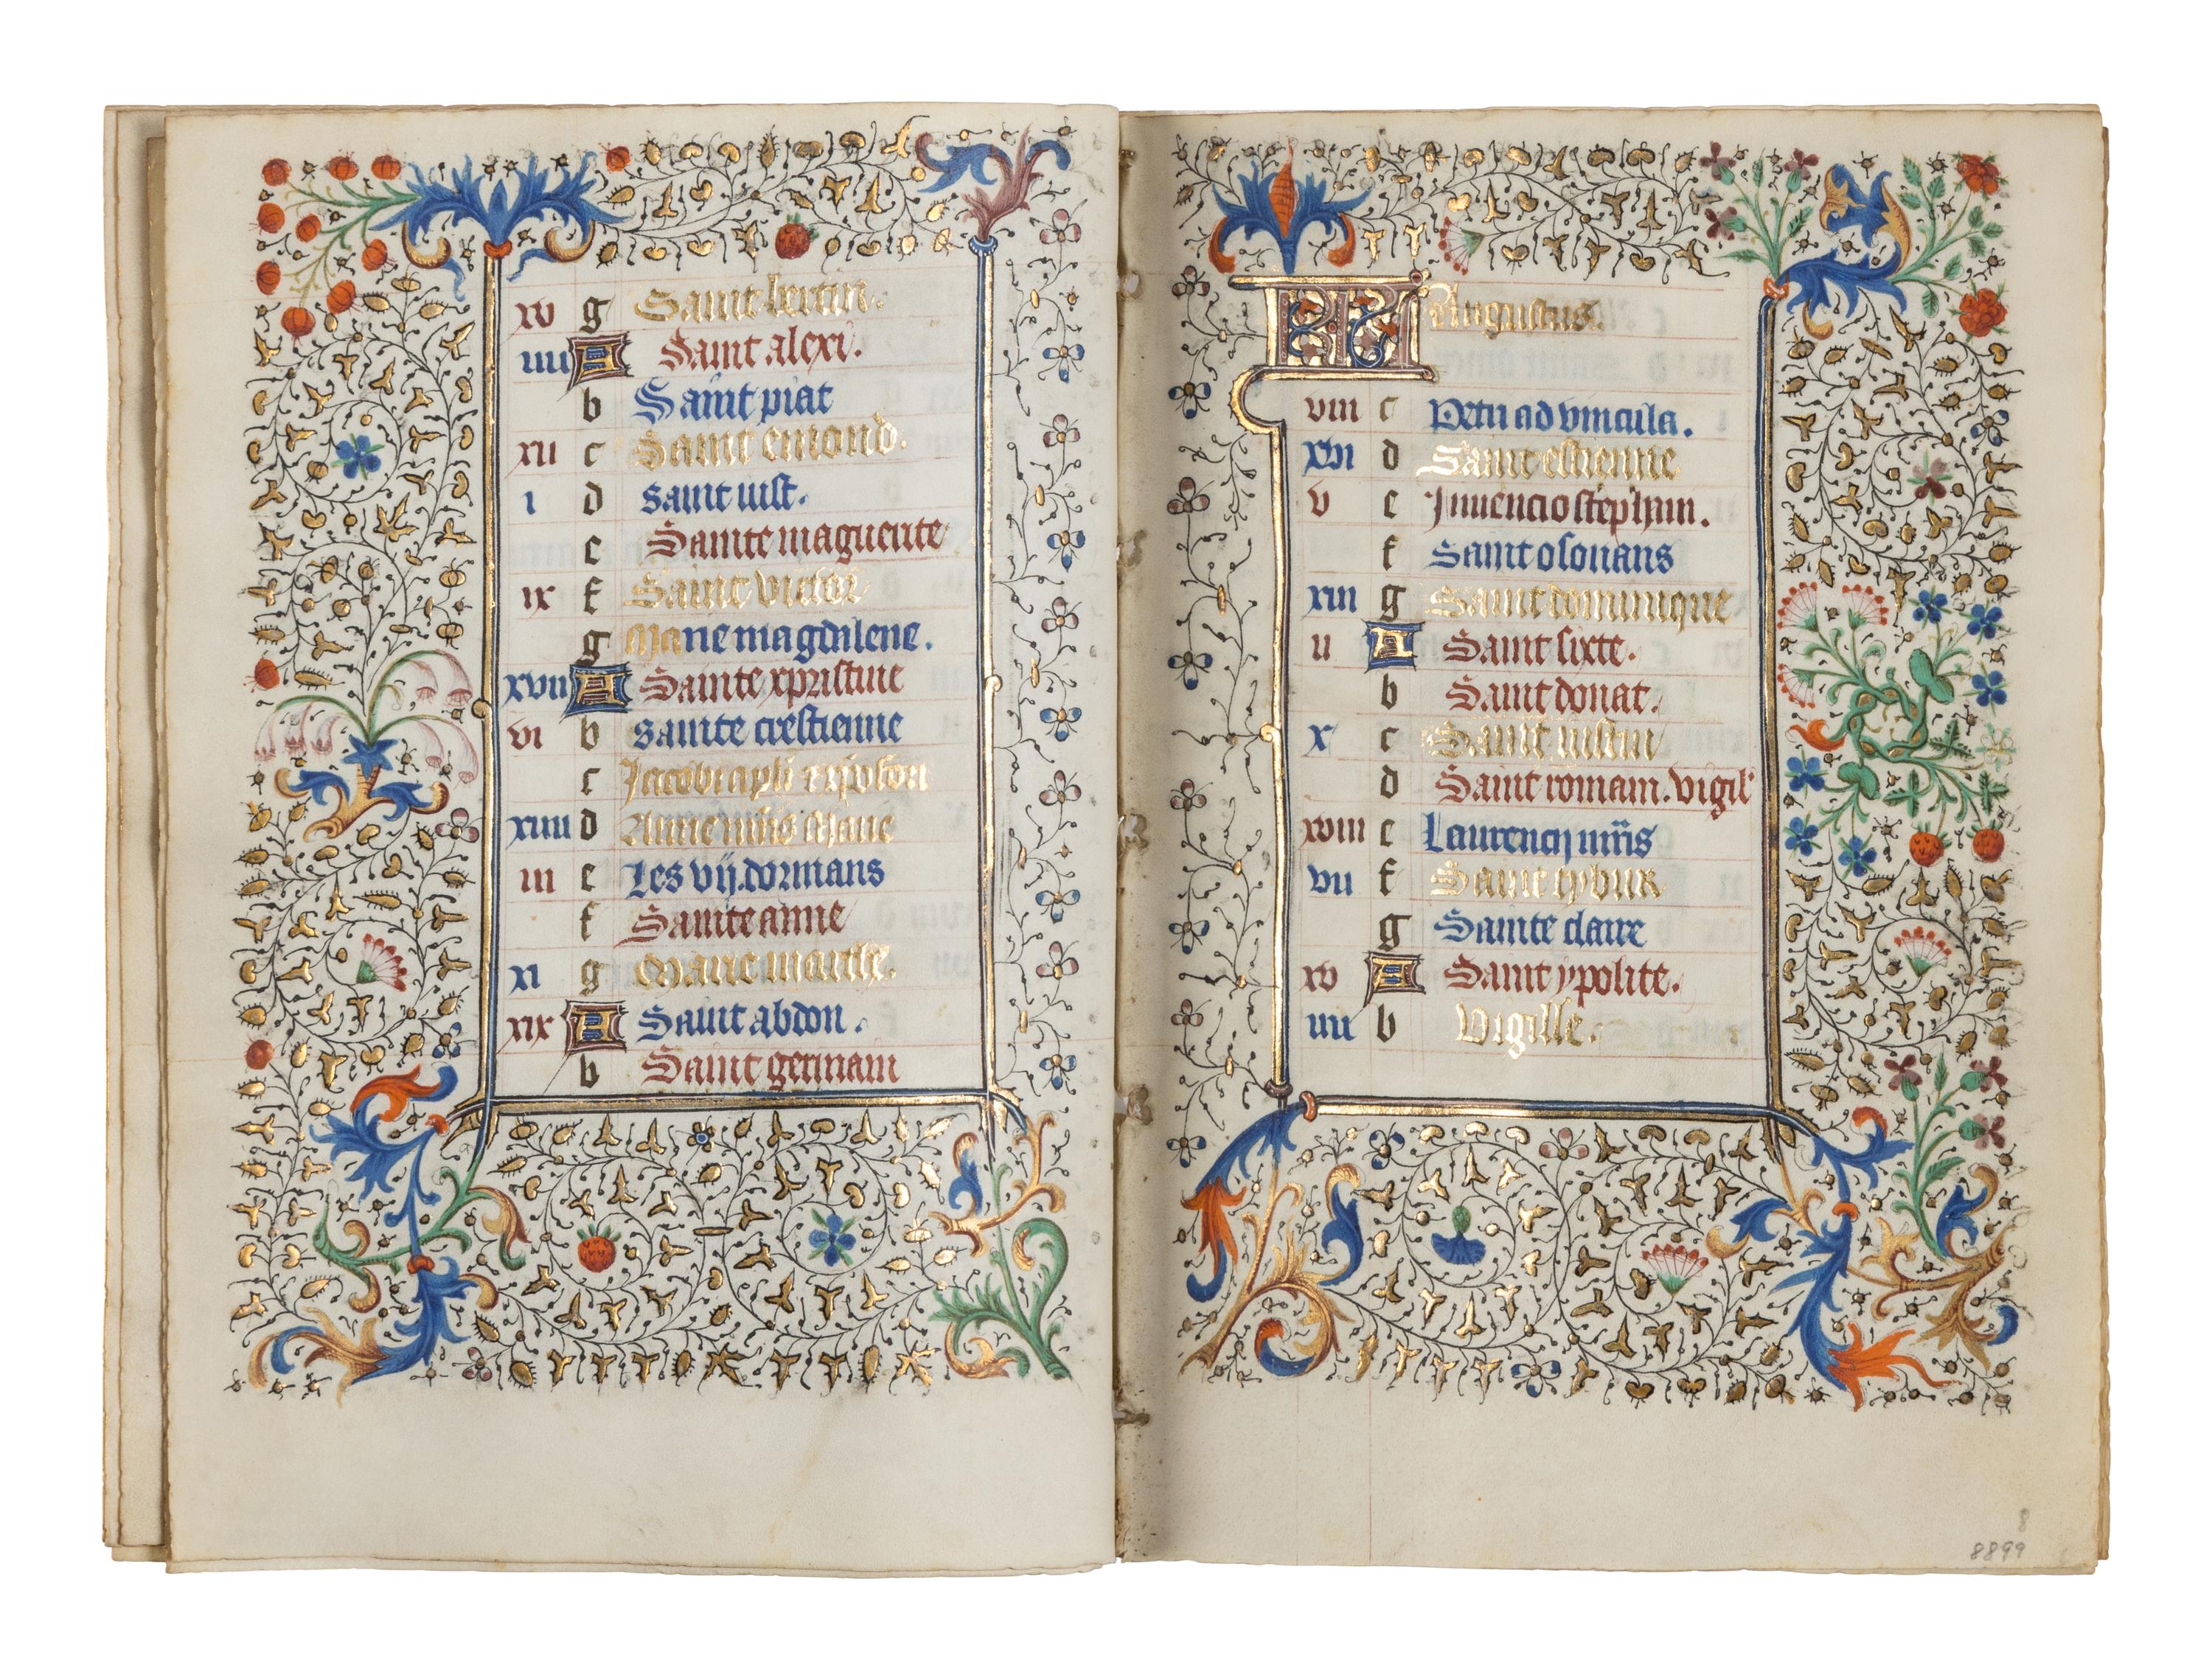 xv g Saint bertin.
iiii A Saint alexi.
b Saint piat
xii c Saint emond.
i d saint iust.
e Sainte maguerite
ix f Saint victor
g Marie magdalene.
xvii A Sainte xpristine
vi b sainte crestienne
c Jacobi apli
xiiii d Anne
iii e Les vij. dormans
f Sainte anne
xi g Marie marthe.
xix A Saint abdon.
b Saint germain
KL Augustus.
viii c Petri ad vincula.
xvi d Saint estienne
v e Inuencio stephani.
f Saint osouans
xiii g Saint dominique
ii A Saint sixte.
b Saint donat.
x c Saint iustin
d Saint romain. vigil'
xviii e Laurencij mr̄is
vii f Saint tyburs
g Sainte claire
xv A Saint ypolite.
iiii b Vigille.
8
8899